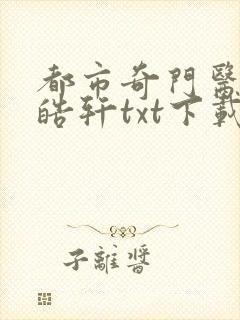 都市奇門醫
皓轩txt下載
子離醬